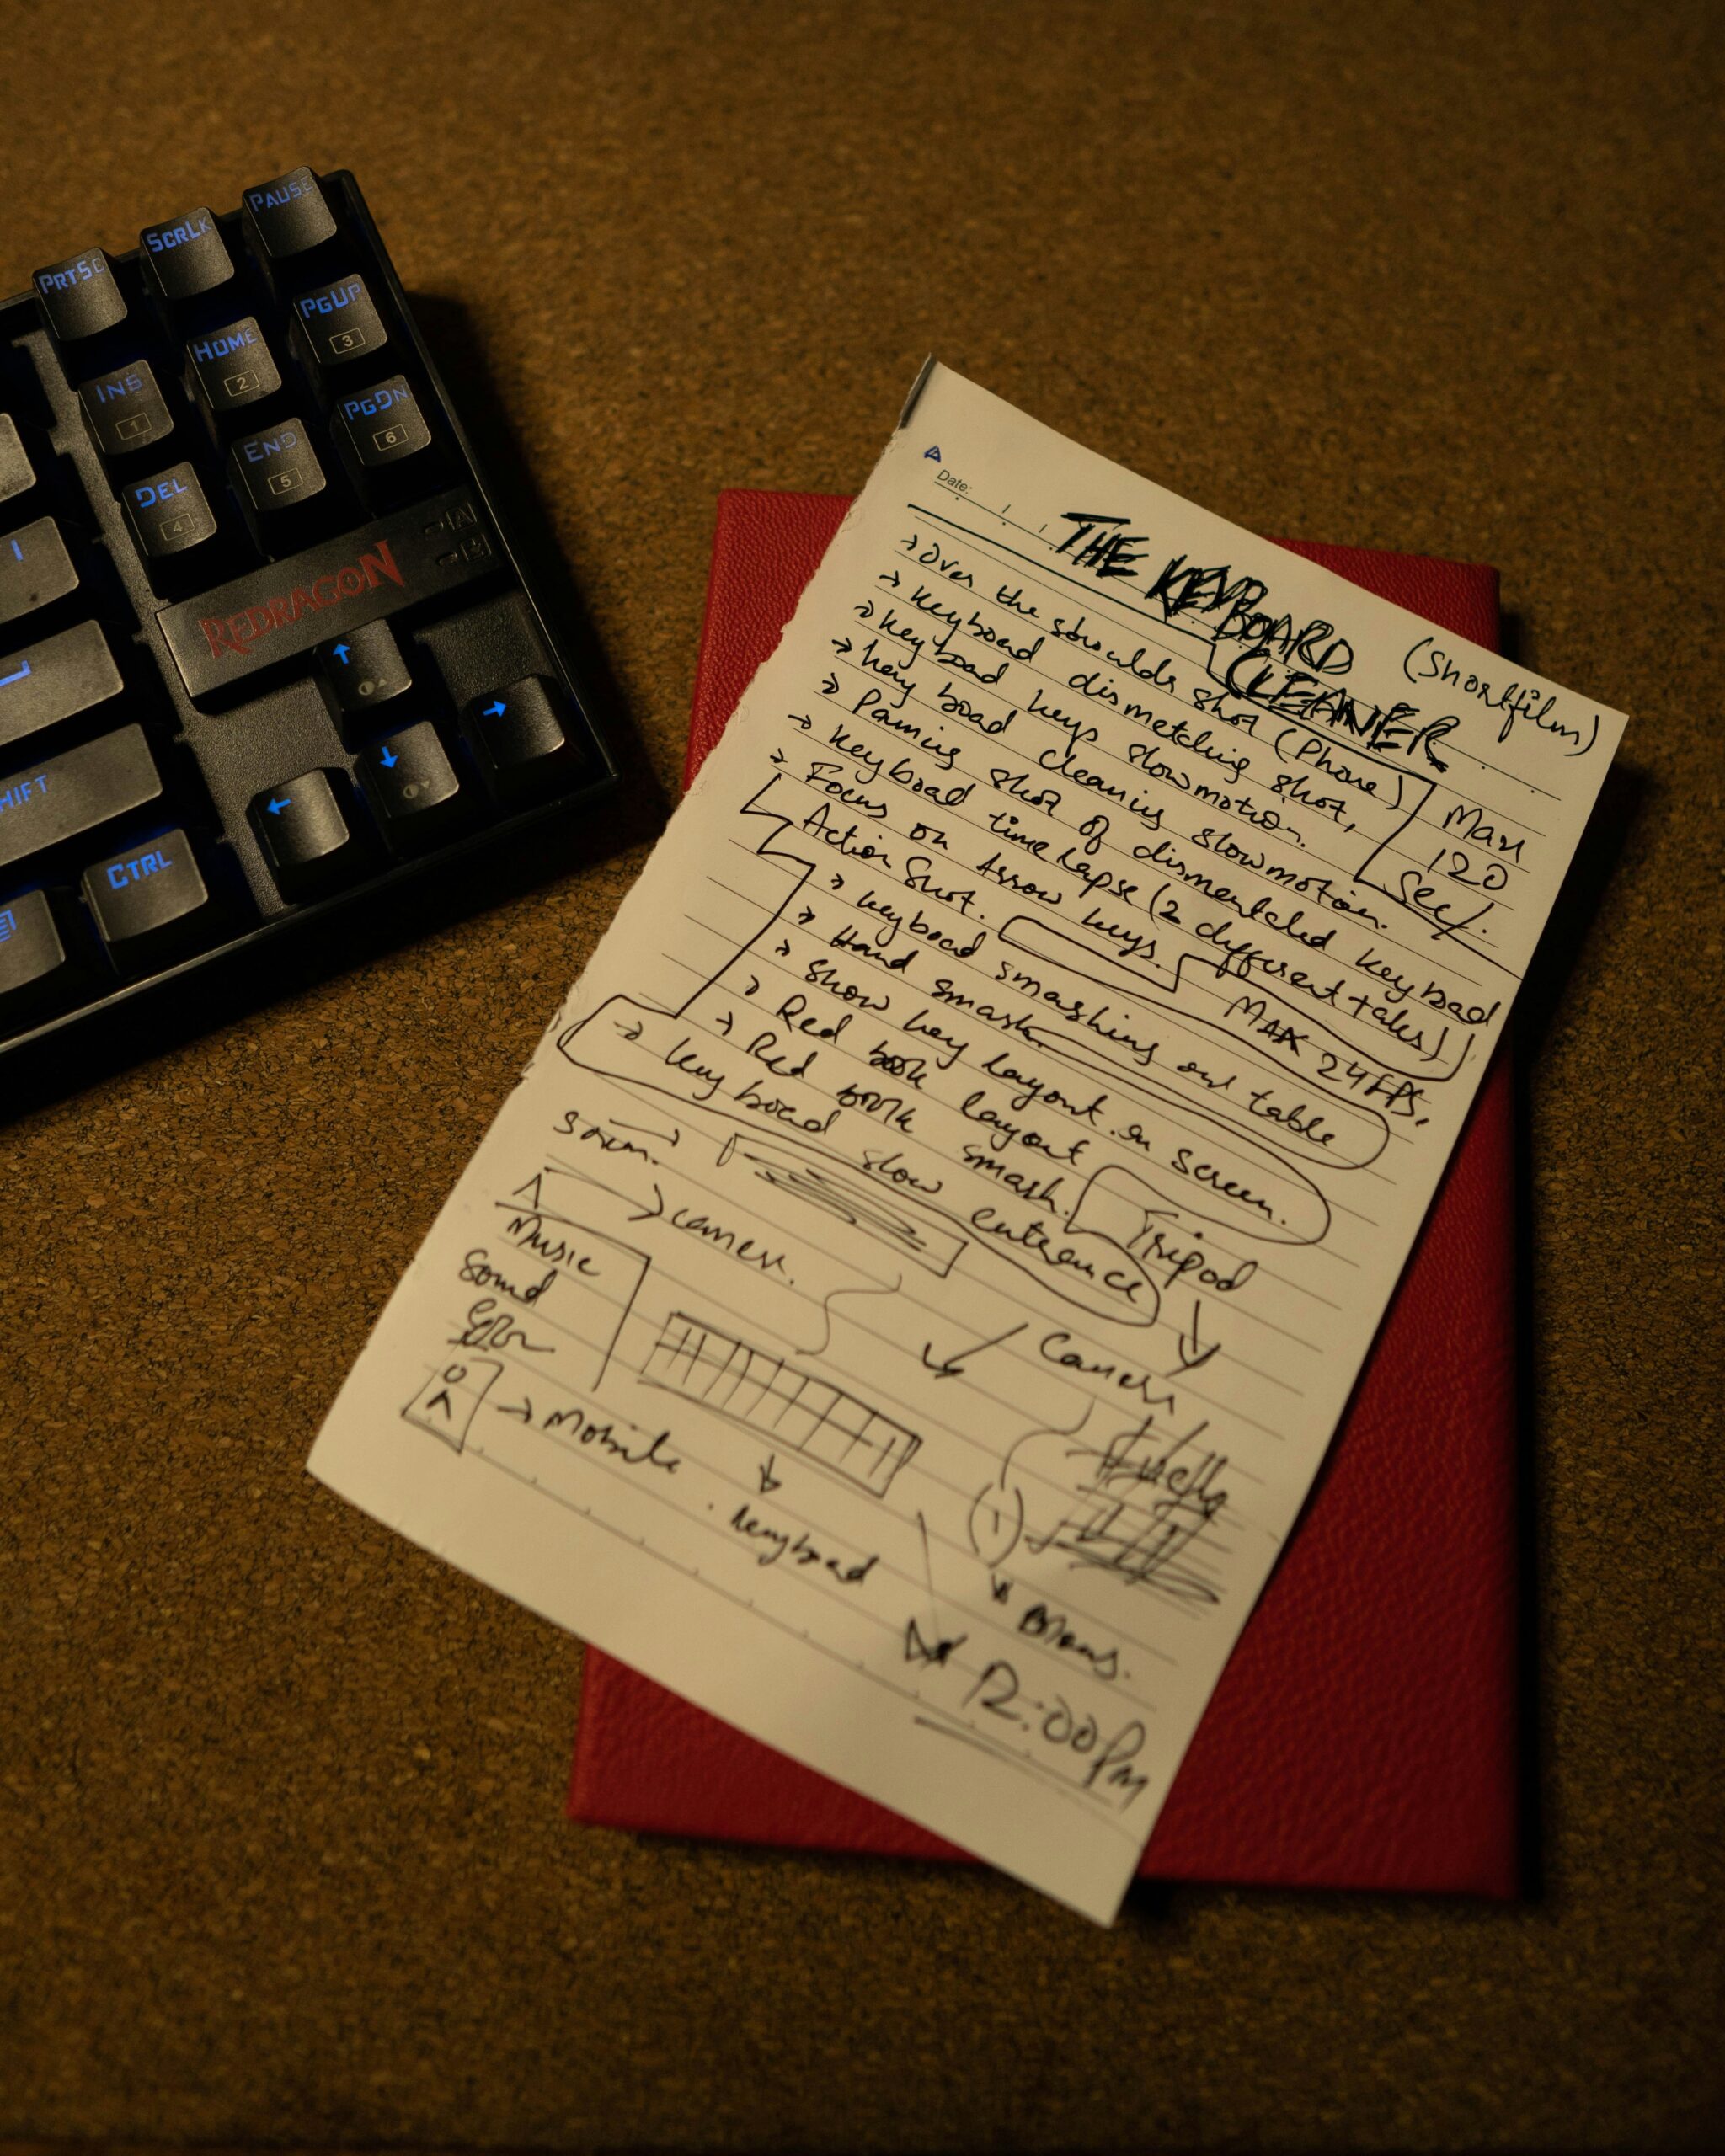 PAUSE
SCRLK
PRTSC
PGUP
3
HOME
2
INS
1
PGDN
6
END
5
DEL
4
A
REDRAGON
SHIFT
CTRL
Date:
THE KEYBOARD
CLEANER
(Shortfilm)
→ Over the shoulder shot (Phone)
→ Keyboad dismetching shot,
→ Keyboad keys slowmotion.
→ keyboad cleaning slowmotion.
→ Panning shot of dismentaled keyboad
→ Keyboad timelapse (2 different takes)
→ Focus on Arrow keys.
Max
120
Sec/.
Action Shot.
MAX 24FPS,
→ keyboad smashing our table
→ Hand smash
→ Show key layout on screen.
→ Red book layout
→ Red book smash.
→ keyboad slow entrence
Tripod
50mm.
camera.
Music
Sound
Camera
→ Mobile
keyboad
12:00 Pm